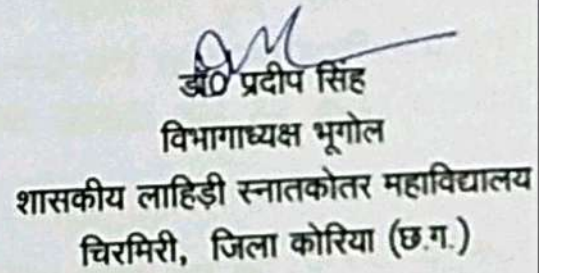 डॉ0 प्रदीप सिंह
विभागाध्यक्ष भूगोल
शासकीय लाहिड़ी स्नातकोतर महाविद्यालय
चिरमिरी, जिला कोरिया (छ.ग.)